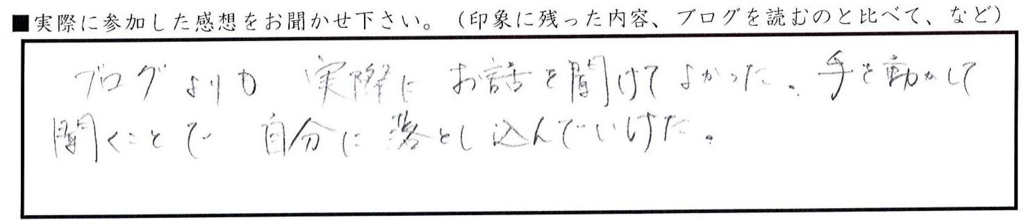 ■実際に参加した感想をお聞かせ下さい。（印象に残った内容、ブログを読むのと比べて、など）
ブログよりも 実際に お話を聞けてよかった。手を動かして
聞くことで 自分に落とし込んでいけた。